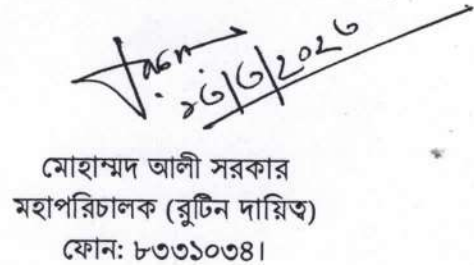 মোহাম্মদ আলী সরকার
মহাপরিচালক (রুটিন দায়িত্ব)
ফোন: ৮৩৩১০৩৪।